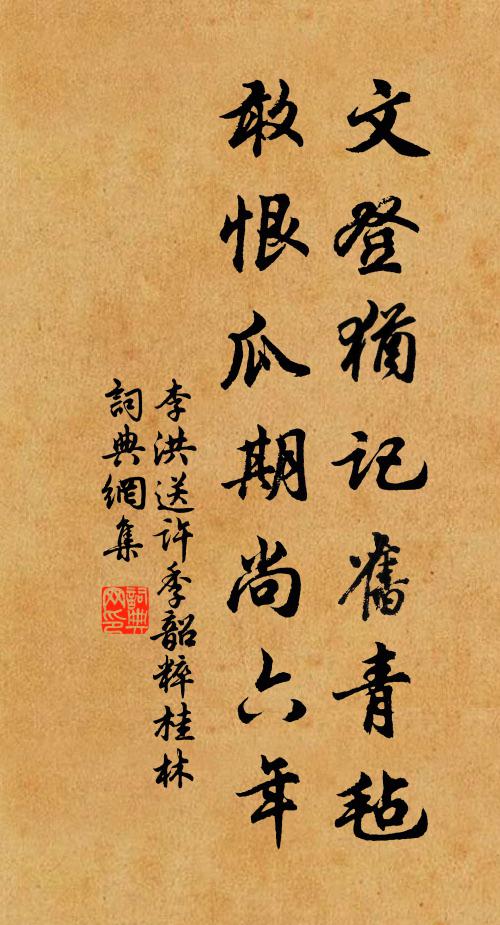 文登猶記舊青毡
敢恨瓜期尚六年
李洪送许季韶粹桂林
詞典網集
詞典网印